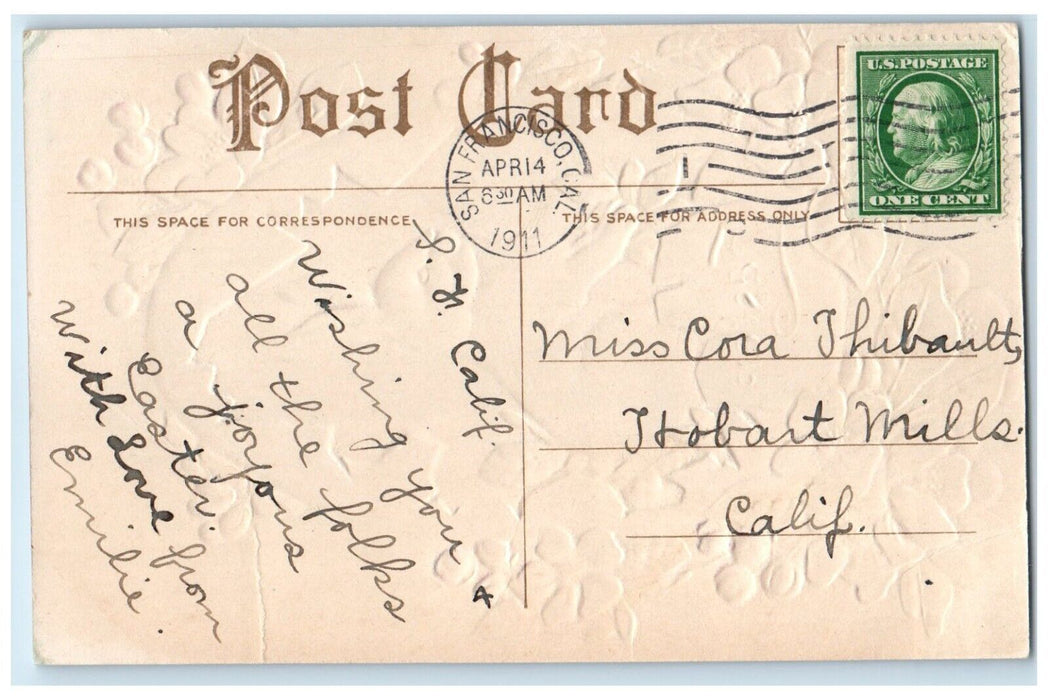 Post Card
SAN FRANCISCO, CAL.
APR 14
6 30 AM
1911
U.S. POSTAGE
ONE CENT
THIS SPACE FOR CORRESPONDENCE
THIS SPACE FOR ADDRESS ONLY
S. F. Calif.
Wishing you +
all the folks
a joyous
Easter.
With Love from
Emilie.
Miss Cora Thibault,
Hobart Mills.
Calif.